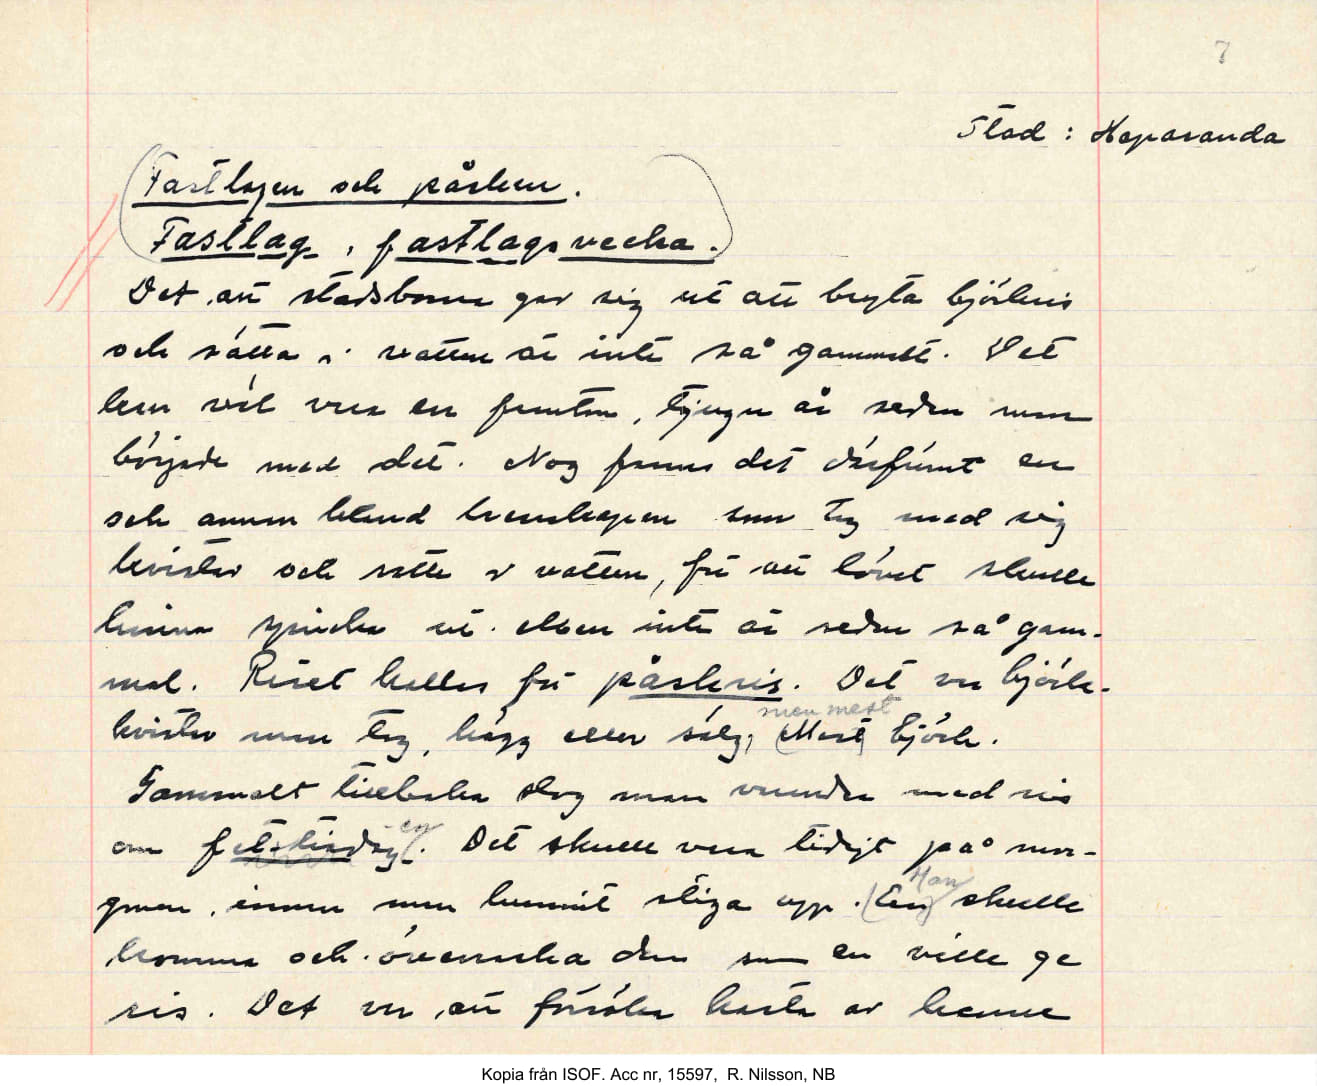 7
Stad: Haparanda
Fastlagen och påsken.
Fastlag, fastlagsvecka.
Det att stadsborna gav sig ut att bryta björkris
och sätta i vatten är inte så gammalt. Det
kan väl vara en femton, tjugu år sedan man
började med det. Nog fanns det därförut en
och annan bland kunskapen som tog med sig
kvistar och satte i vatten, för att lövet skulle
kunna spricka ut. Men inte är seden så gam-
mal. Riset kallas för påskris. Det var björk-
men mest
kvistar man tog, hägg eller sälg, (Mest) björk.
Gammalt tillbaka slog man varandra med ris
om fet-tisdag-en. Det skulle vara tidigt på mor-
Man
gonen, innan man hunnit stiga upp. (En) skulle
komma och överraska den som en ville ge
ris. Det var att försöka kasta av henne
Kopia från ISOF. Acc nr, 15597, R. Nilsson, NB